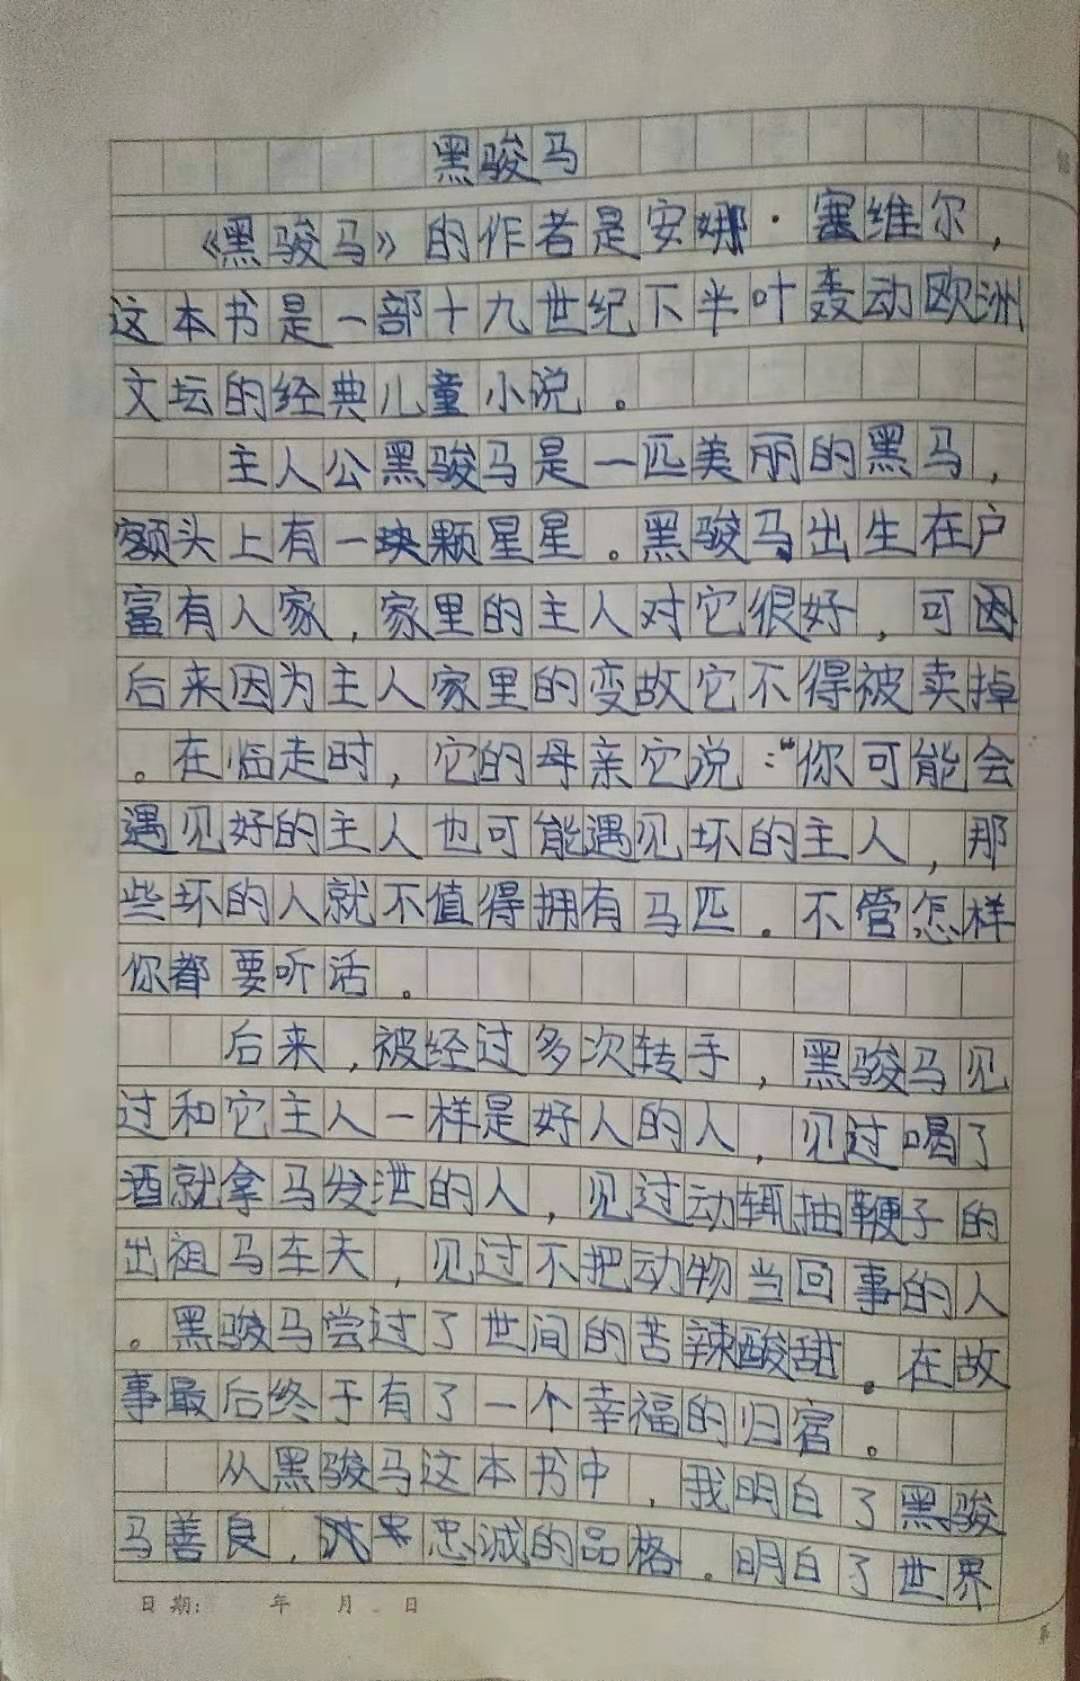 黑骏马
《黑骏马》的作者是安娜·塞维尔，
这本书是一部十九世纪下半叶轰动欧洲
文坛的经典儿童小说。
主人公黑骏马是一匹美丽的黑马，
额头上有一块颗星星。黑骏马出生在户
富有人家，家里的主人对它很好，可因
后来因为主人家里的变故它不得被卖掉
。在临走时，它的母亲它说：“你可能会
遇见好的主人也可能遇见坏的主人，那
些坏的人就不值得拥有马匹。不管怎样
你都要听话。
后来，被经过多次转手，黑骏马见
过和它主人一样是好人的人，见过喝了
酒就拿马发泄的人，见过动辄抽鞭子的
出祖马车夫，见过不把动物当回事的人
。黑骏马尝过了世间的苦辣酸甜。在故
事最后终于有了一个幸福的归宿。
从黑骏马这本书中，我明白了黑骏
马善良，忠诚的品格。明白了世界
日期： 年 月 日